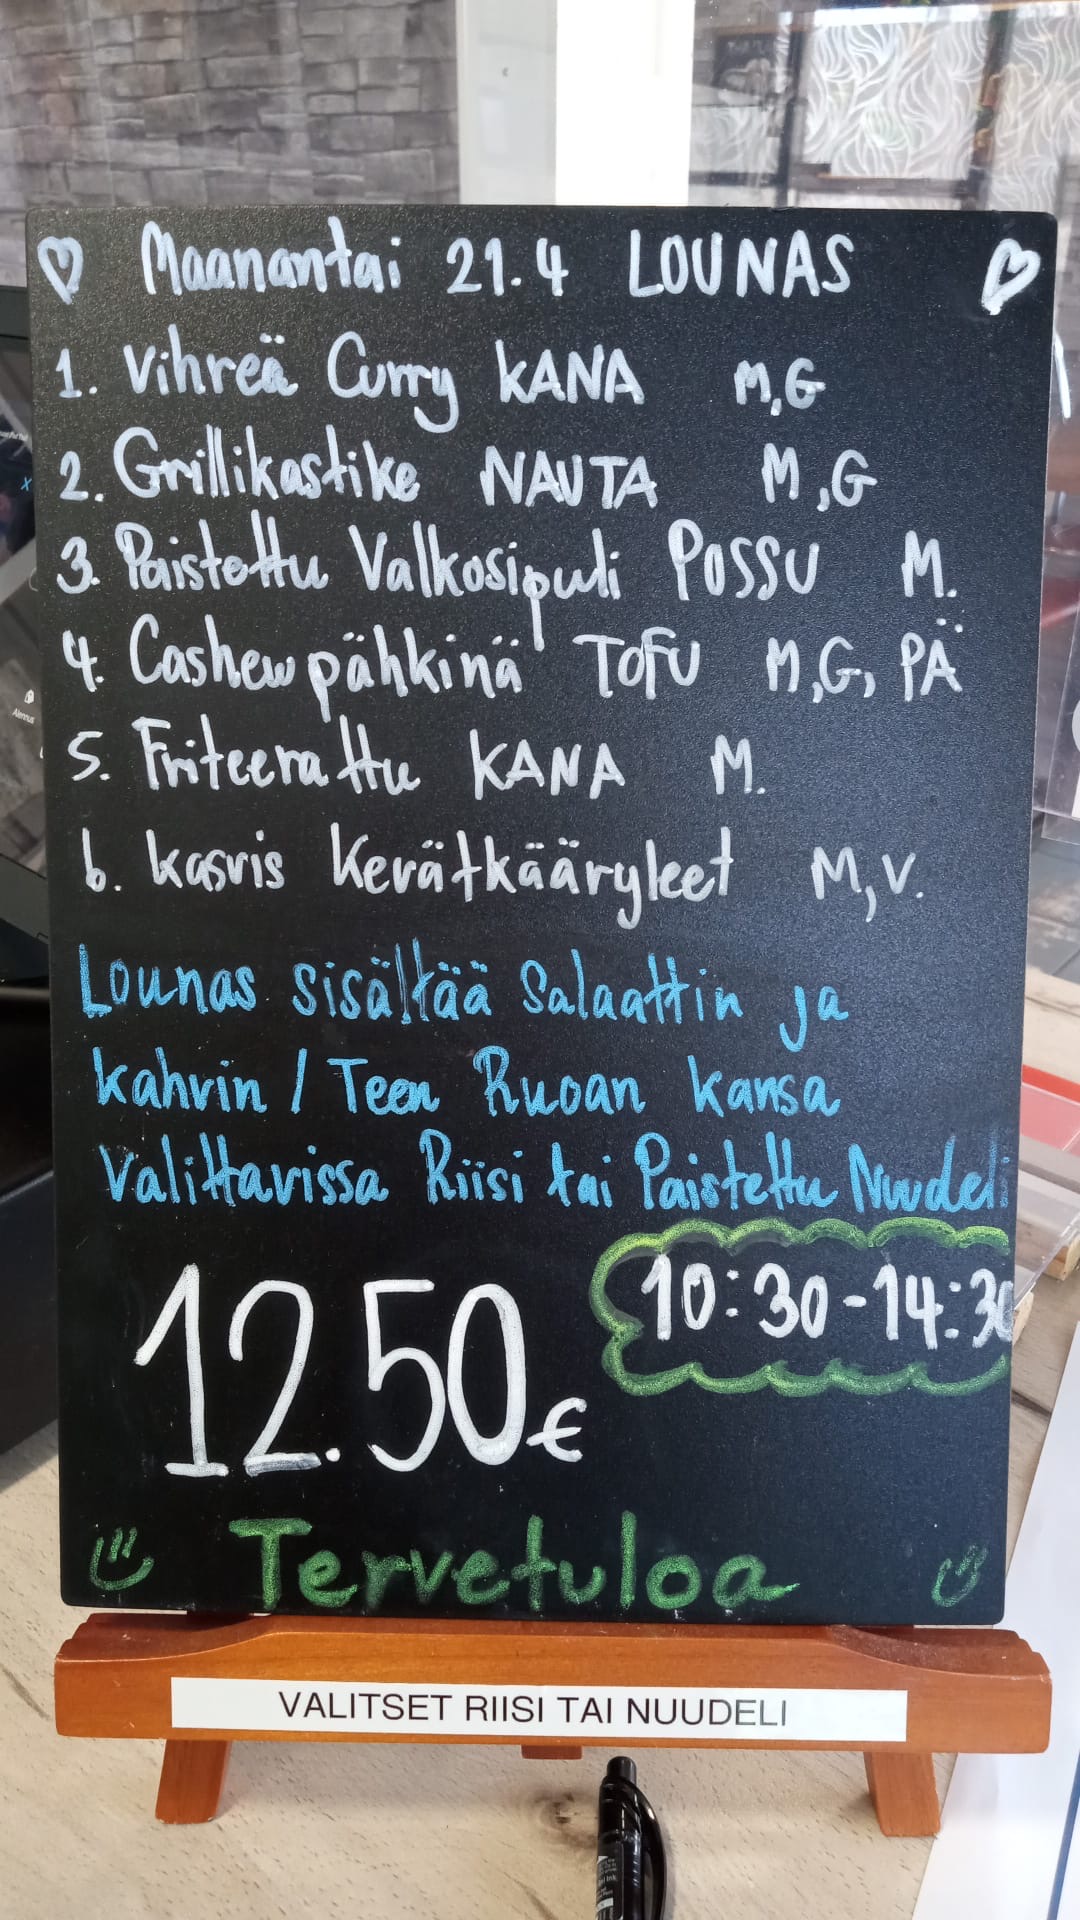 Maanantai 21.4 LOUNAS
1. Vihreä Curry KANA M,G
2. Grillikastike NAUTA M,G
3. Paistettu Valkosipuli POSSU M.
4. Cashewpähkinä TOFU M,G, PÄ
5. Friteerattu KANA M.
6. Kasvis Kevätkääryleet M,V.
Lounas sisältää Salaattin ja
kahvin / Teen Ruoan kansa
Valittavissa Riisi tai Paistettu Nuudeli
10:30-14:30
12.50€
Tervetuloa
VALITSET RIISI TAI NUUDELI
Alennus